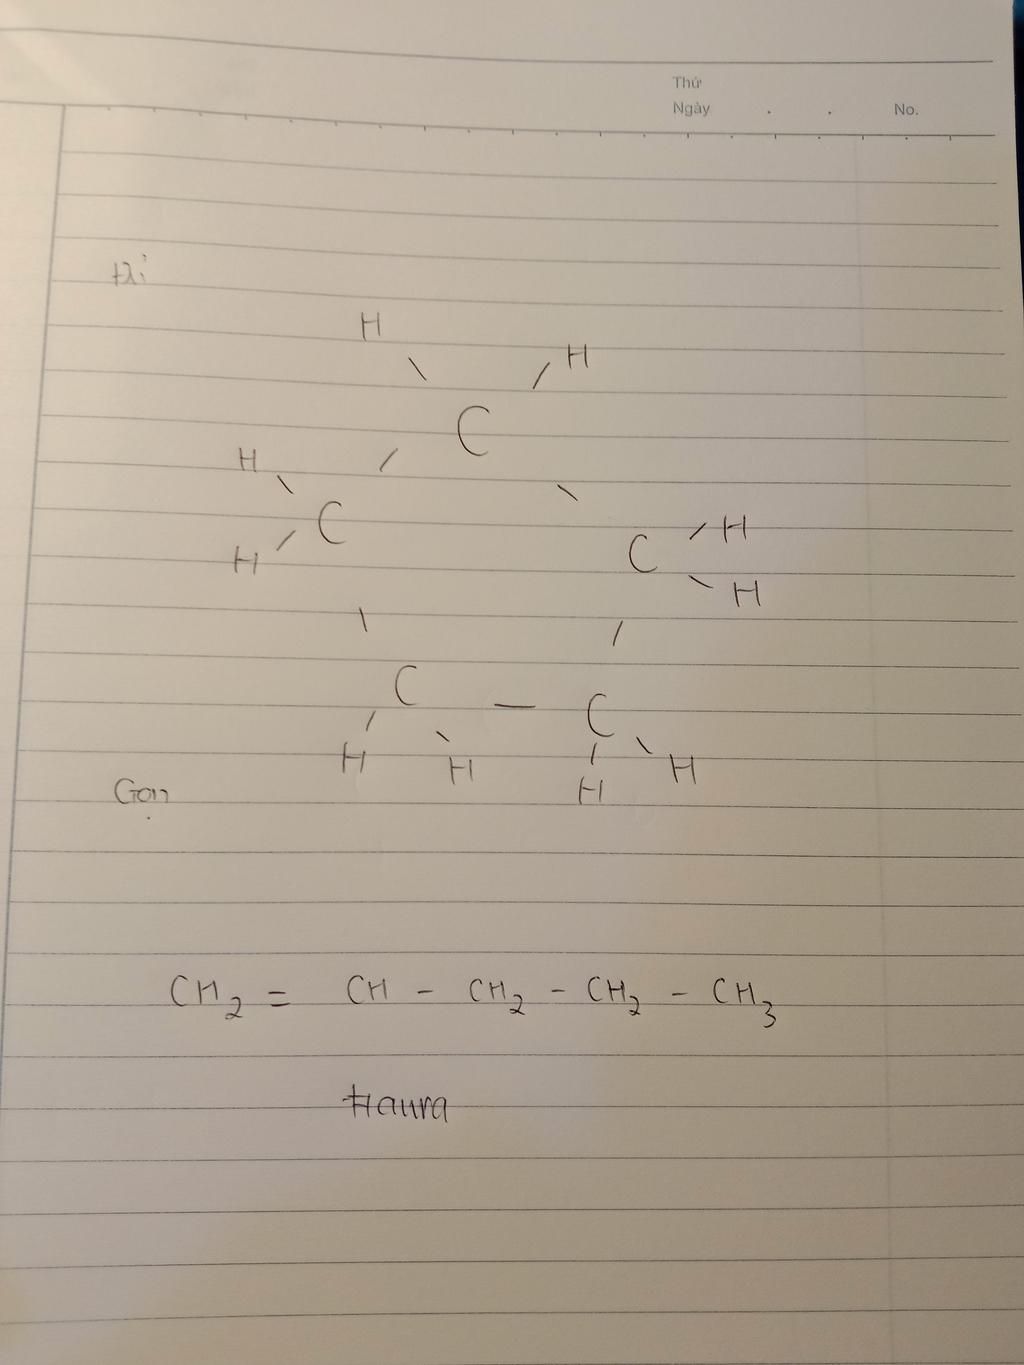 Thứ
Ngày . . No.
H
H
C
H
C
H
C
H
H
C
C
H
H
H
H
Gọn
CH₂ = CH - CH₂ - CH₂ - CH₃